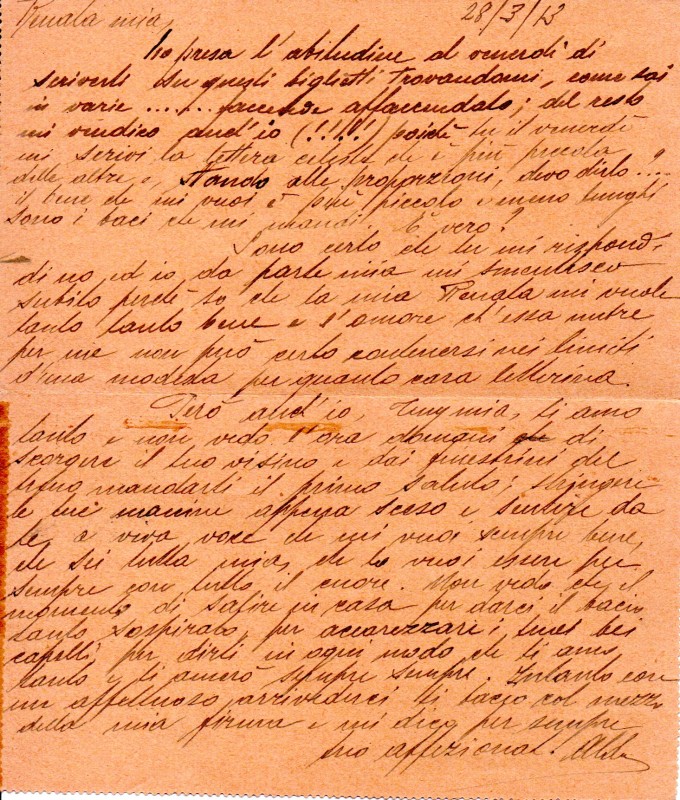 Renata mia,
28/3/13
ho presa l'abitudine al venerdì di
scriverti su questi biglietti trovandomi, come sai
in varie ........ faccende affaccendato; del resto
mi vendico anch'io (!!!!!) poichè tu il venerdì
mi scrivi la lettera celeste che è più piccola
delle altre. Stando alle proporzioni, devo dirlo....?
il bene che mi vuoi è più piccolo e meno lunghi
sono i baci che mi mandi. È vero?
Sono certo che tu mi rispondi
di no, ed io da parte mia mi smentisco
subito perchè so che la mia Renata mi vuole
tanto tanto bene e l'amore ch'essa nutre
per me non può certo contenersi nei limiti
d'una modesta per quanto cara letterina.
Però anch'io, mia, ti amo
tanto e non vedo l'ora domani che di
scorgere il tuo visino e dai finestrini del
treno mandarti il primo saluto; stringere
le tue manine appena sceso e sentire da
te, a viva voce che mi vuoi sempre bene,
che sei tutta mia, che lo vuoi essere per
sempre con tutto il cuore. Non vedo che il
momento di salire in casa per darci il bacio
tanto sospirato, per accarezzare i tuoi bei
capelli, per dirti in ogni modo che ti amo
tanto e ti amerò sempre sempre. Intanto con
un affettuoso arrivederci ti bacio col mezzo
della mia firma e mi dico per sempre
tuo affezionat.